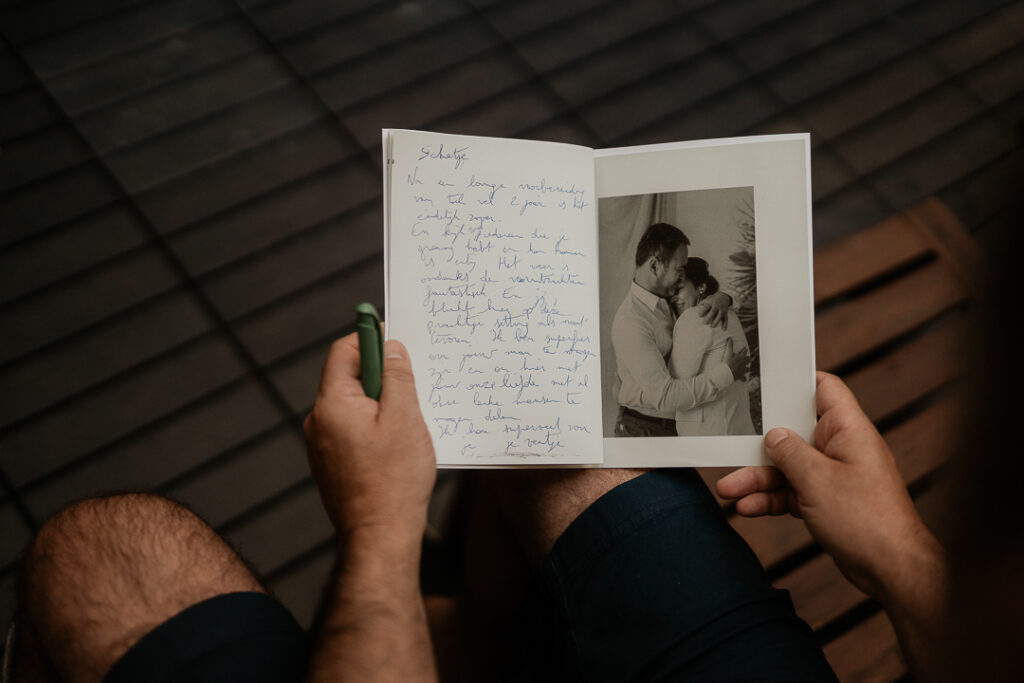 Schatje
Na een lange voorbereiding
van wel 2 jaar is het
eindelijk zover.
En kijk iedereen die je
graag hebt en kon komen
is er bij. Het weer is
ondanks de vooruitzichten
fantastisch. En
hier op Deze
prachtige setting als
Ik ben superfier
om jouw man te mogen
zijn en om hier met
jouw onze liefde met al
deze leuke mensen te
mogen delen
Ik hou superveel van
je je ventje